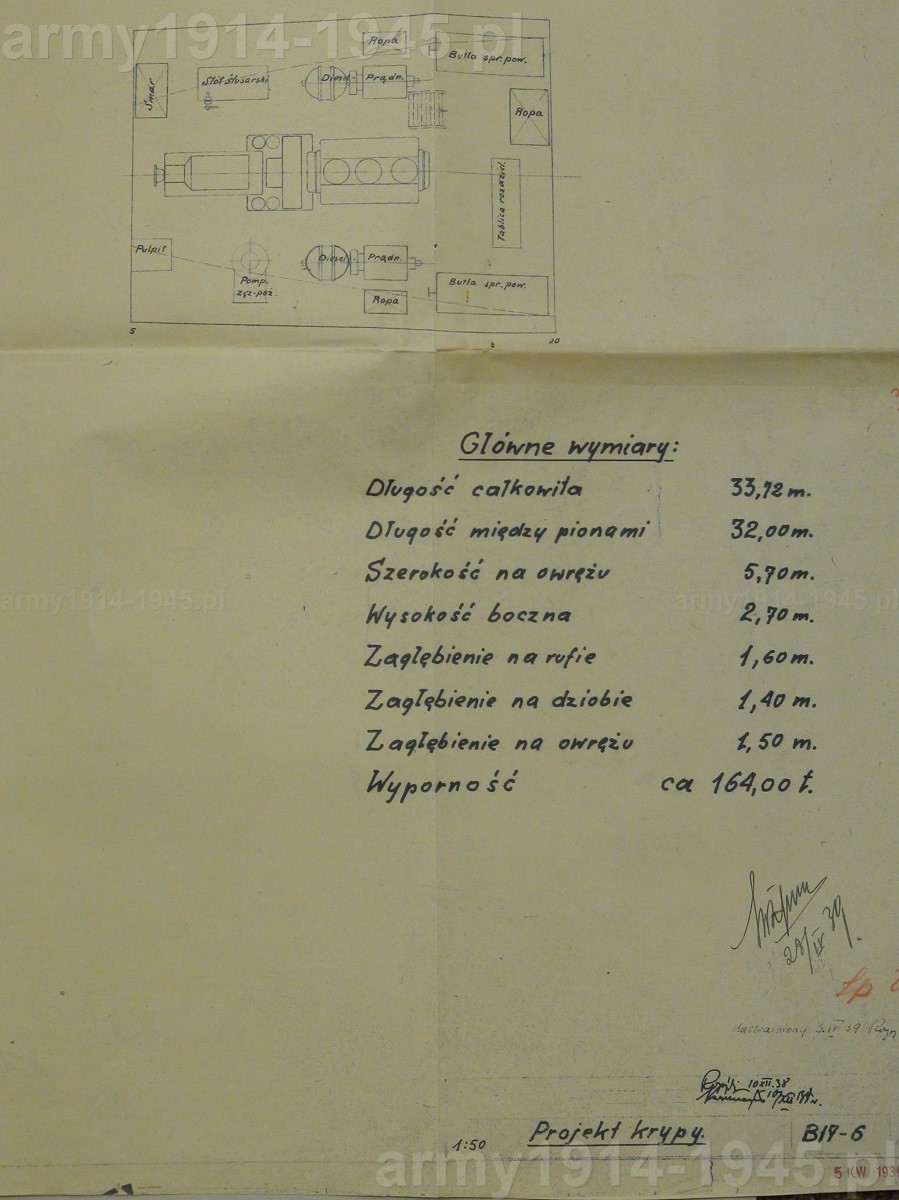 army1914-1945.pl
Ropa
Butla spr. pow.
Smar
Stół ślusarski
Diesel
Prądn.
Ropa
Tablica rozdziel.
Pulpit
Diesel
Prądn.
Pomp.
zęz-poż.
Butla spr. pow.
Ropa
5
20
Główne wymiary:
Długość całkowita 33,72 m.
Długość między pionami 32,00 m.
Szerokość na owrężu 5,70 m.
army1914-1945.pl army1914-1945.pl
Wysokość boczna 2,70 m.
Zagłębienie na rufie 1,60 m.
Zagłębienie na dziobie 1,40 m.
Zagłębienie na owrężu 1,50 m.
Wyporność ca 164,00 t.
28/IV 39.
3.IV 39
10 XII.38
1:50 Projekt krypy. B17-6
army1914-1945.pl
5 KW 1939